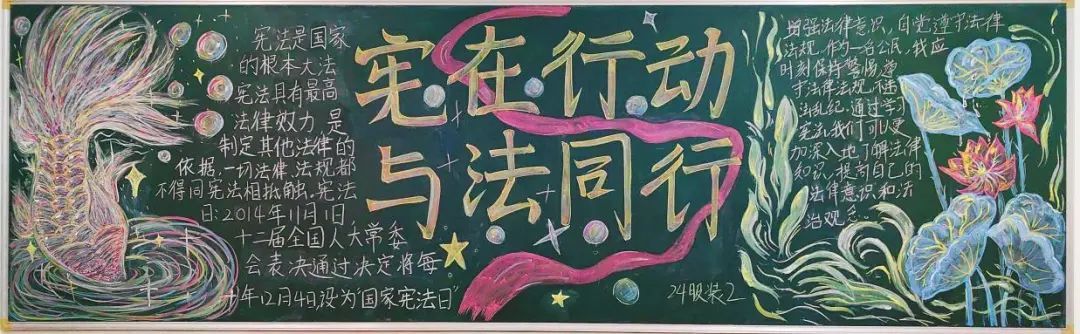 宪法是国家
的根本大法
宪法具有最高
法律效力,是
制定其他法律的
依据,一切法律、法规都
不得同宪法相抵触.宪法
日:2014年11月1日,
十二届全国人大常委
会表决通过决定将每
年12月4日,设为“国家宪法日”
宪在行动
与法同行
24服装2
增强法律意识,自觉遵守法律
法规.作为一名公民,我应
时刻保持警惕,遵
守法律法规,不违
法乱纪.通过学习
交流,我们可以更
加深入地了解法律
知识,提高自己的
法律意识和法
治观念.